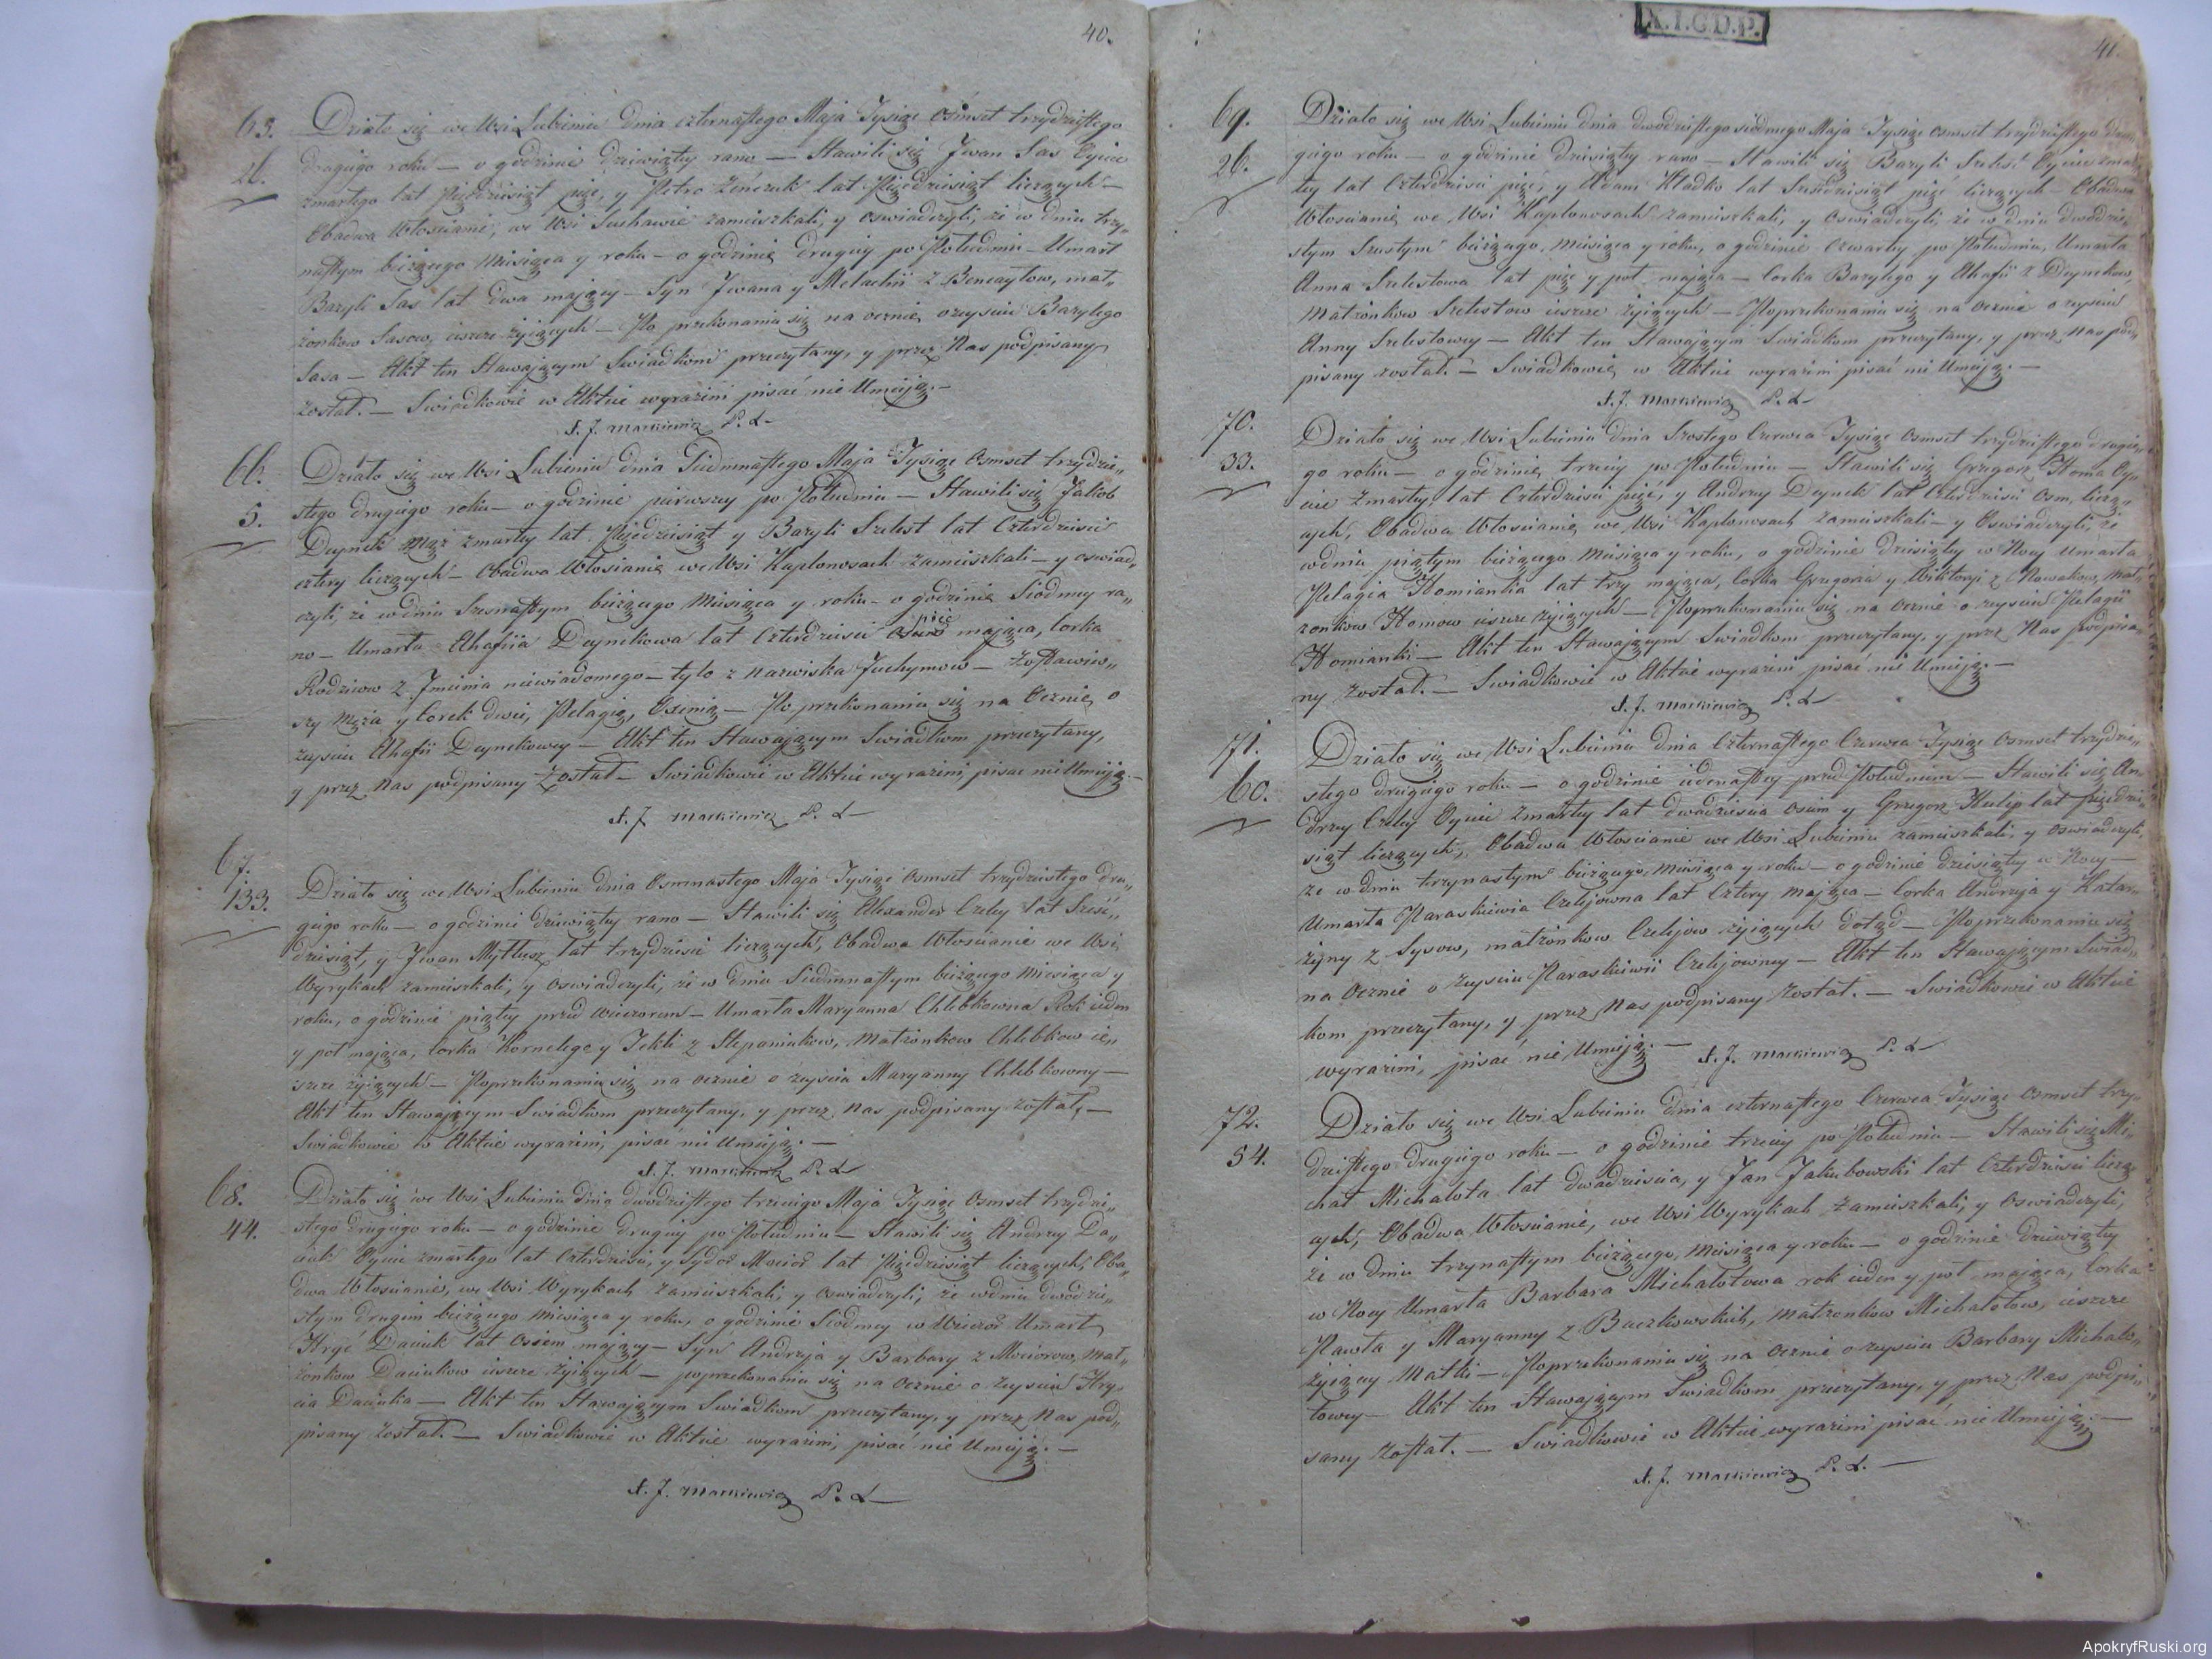 40.
65.
26.
Działo się we Wsi Lubieniu dnia czternastego Maja Tysiąc Osmset trzydziestego
drugiego roku — o godzinie dziewiątey rano — Stawili się Jwan Sas Oyciec
zmarłego lat Pięćdziesiąt pięć, y Petro Zińczuk lat Pięćdziesiąt liczących —
Obadwa Włoscianie, we Wsi Suchawie zamieszkali, y oswiadczyli, że w dniu trzy„
nastym bieżącego Miesiąca y roku — o godzinie drugiey po Południu — Umarł
Bazyli Sas lat dwa maiący — Syn Jwana y Melachii z Bencaytow, mał„
żonkow Sasow, ieszcze żyiących — Po przekonaniu się na ocznie o zeysciu Bazylego
Sasa — Akt ten Stawaiącym Swiadkom przeczytany, y przez Nas podpisany
został. — Swiadkowie w Akcie wyrażeni pisać nie Umieią. —
X. J. Markiewicz P. L.
66.
5.
Działo się we Wsi Lubieniu dnia Siedmnastego Maja Tysiąc Osmset trzydzie„
stego drugiego roku — o godzinie pierwszey po Południu — Stawili się Jakób
Deynek Mąż zmarłey lat Pięćdziesiąt y Bazyli Szelest lat Czterdziesci
cztery liczących — Obadwa Włoscianie we Wsi Kaplonosach zamieszkali — y oswiad„
czyli, że w dniu Szesnastym bieżącego Miesiąca y roku — o godzinie Siodmey ra„
no — Umarła Ahafija Deynekowa lat Czterdziesci pięć maiąca, Corka
Rodzicow z Jmienia niewiadomego — tylo z nazwiska Juchymow — Zostawiw„
szy Męża y Corek dwie, Pelagię, Oxenię — Po przekonaniu się na Ocznie o
zeysciu Ahafii Deynekowey — Akt ten Stawaiącym Swiadkom przeczytany,
y przez Nas podpisany Został — Swiadkowie w Akcie wyrażeni pisac nie Umieią —
X. J. Markiewicz P. L —
67.
133.
Działo się we Wsi Lubieniu dnia Osmnastego Maja Tysiąc Osmset trzydziestego dru„
giego roku — o godzinie dziewiątey rano — Stawili się Alexander Czeley lat Sześć„
dziesiąt, y Jwan Mytlusz lat trzydziesci liczących, Obadwa Włoscianie we Wsi
Wyrykach zamieszkali, y oswiadczyli, że w dniu Siedmnastym bieżącego Miesiąca y
roku, o godzinie piątey przed wieczorem — Umarła Maryanna Chlebkowna Rok ieden
y poł maiąca, Corka Kornelego y Tekli z Stepaniukow, Małżonkow Chlebkow ie„
szcze żyiących — Po przekonaniu się na ocznie o zeysciu Maryanny Chlebkowny —
Akt ten Stawaiącym Swiadkom przeczytany, y przez Nas podpisany został, —
Swiadkowie w Akcie wyrażeni, pisać nie Umieią. —
X. J. Markiewicz P. L
68.
44.
Działo się we Wsi Lubieniu dnia dwodziestego trzeciego Maja Tysiąc Osmset trzydzie„
stego drugiego roku — o godzinie drugiey po Południu — Stawili się Andrzey Da„
ciuk Oyciec zmarłego lat Czterdziesci, y Sydor Mocior lat Pięćdziesiąt liczących, Oba„
dwa Włoscianie, we Wsi Wyrykach zamieszkali, y oswiadczyli, że w dniu dwodzie„
stym drugim bieżącego Miesiąca y roku, o godzinie Siodmey w Wieczor Umarł
Hryć Daciuk lat Osiem maiący — Syn Andrzeja y Barbary z Mociorow, Mał„
żonkow Daciukow ieszcze żyiących — po przekonaniu się na Ocznie o zeysciu Hry„
cia Daciuka — Akt ten Stawaiącym Swiadkom przeczytany, y przez Nas pod„
pisany Został. — Swiadkowie w Akcie wyrażeni, pisać nie Umieią. —
X. J. Markiewicz P. L —
X.I.G.D.P.
41.
69.
26.
Działo się we Wsi Lubieniu dnia dwodziestego siodmego Maja Tysiąc osmset trzydziestego dru„
giego roku — o godzinie dziesiątey rano — Stawili się Bazyli Szelest Oyciec zmar„
łey lat Czterdziesci pięć, y Adam Kladko lat Sześćdziesiąt pięć liczących Obadwa
Włoscianie we Wsi Kaplonosach zamieszkali, y Oswiadczyli, że w dniu dwodzie„
stym Szostym bieżącego Miesiąca y roku, o godzinie Czwartey po Południu, Umarła
Anna Szelestowa lat pięć y poł maiąca — Corka Bazylego y Ahafii z Deynekow,
Małżonkow Szelestow ieszcze żyiących — Po przekonaniu się na Ocznie o zeysciu
Anny Szelestowey — Akt ten Stawaiącym Swiadkom przeczytany, y przez Nas pod„
pisany został. — Swiadkowie w Akcie wyrażeni pisać nie Umieią. —
X. J. Markiewicz P. L —
70.
33.
Działo się we Wsi Lubieniu dnia Szostego Czerwca Tysiąc Osmset trzydziestego drugie„
go roku — o godzinie trzeciey po Południu — Stawili się Grzegorz Homa Oy„
ciec Zmarłey, lat Czterdziesci pięć, y Andrzey Deynek lat Czterdziesci Osm, licząc„
ych, Obadwa Włoscianie we Wsi Kaplonosach zamieszkali — y Oswiadczyli, że
w dniu piątym bieżącego Miesiąca y roku, o godzinie dziesiątey w Nocy umarła
Pelagia Homianka lat trzy maiąca, Corka Grzegorza y Wiktoryi z Nowakow, Mał„
żonkow Homow ieszcze żyiących — Po przekonaniu się na Ocznie o zeysciu Pelagii
Homianki — Akt ten Stawaiącym Swiadkom przeczytany, y przez Nas podpisa„
ny został. — Swiadkowie w Akcie wyrażeni pisać nie Umieią. —
X. J. Markiewicz P. L —
71.
60.
Działo się we Wsi Lubieniu dnia Czternastego Czerwca Tysiąc Osmset trzydzie„
stego drugiego roku — o godzinie iedenastey przed Południem — Stawili się An„
drzey Czeley Oyciec Zmarłey lat dwadziescia osiem y Grzegorz Kulip lat pięćdzie„
siąt liczących, Obadwa Włoscianie we Wsi Lubieniu zamieszkali, y oswiadczyli,
że w dniu trzynastym bieżącego Miesiąca y roku — o godzinie dziesiątey w Nocy —
Umarła Paraskiewia Czelejowna lat Cztery maiąca — Corka Andrzeja y Katar„
zyny z Sysow, małżonkow Czelejow żyiących dotąd — Po przekonaniu się
na Ocznie o zeysciu Paraskiewii Czelejowny — Akt ten Stawaiącym Swiad„
kom przeczytany, y przez Nas podpisany Został. — Swiadkowie w Akcie
wyrażeni, pisać nie Umieią. — X. J. Markiewicz P. L —
72.
54.
Działo się we Wsi Lubieniu dnia czternastego Czerwca Tysiąc Osmset trzy„
dziestego drugiego roku — o godzinie trzeciey po Południu — Stawili się Mi„
chał Michałota lat dwadziescia, y Jan Jakubowski lat Czterdziesci licząc„
ych, Obadwa Włoscianie, we Wsi Wyrykach zamieszkali, y Oswiadczyli,
że w dniu trzynastym bieżącego Miesiąca y roku — o godzinie Dziewiątey
w Nocy Umarła Barbara Michałotowa rok ieden y poł maiąca, Corka
Pawła y Maryanny z Baczkowskich, Małżonkow Michałotow, ieszcze
żyiącey Matki — Po przekonaniu się na Ocznie o zeysciu Barbary Michało„
towey — Akt ten Stawaiącym Swiadkom przeczytany, y przez Nas podpi„
sany Został. — Swiadkowie w Akcie wyrażeni pisać nie Umieią. —
X. J. Markiewicz P. L. —
ApokryfRuski.org